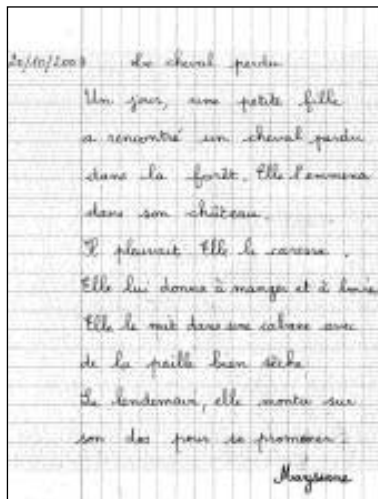 Le cheval perdu
Un jour, une petite fille
a rencontré un cheval perdu
dans la forêt. Elle l'emmena
dans son château.
Il pleuvait Elle le caresse.
Elle lui donne à manger et à boire
Elle le mit dans une cabane avec
de la paille bien sèche
Le lendemain, elle monta sur
son dos pour se promener.